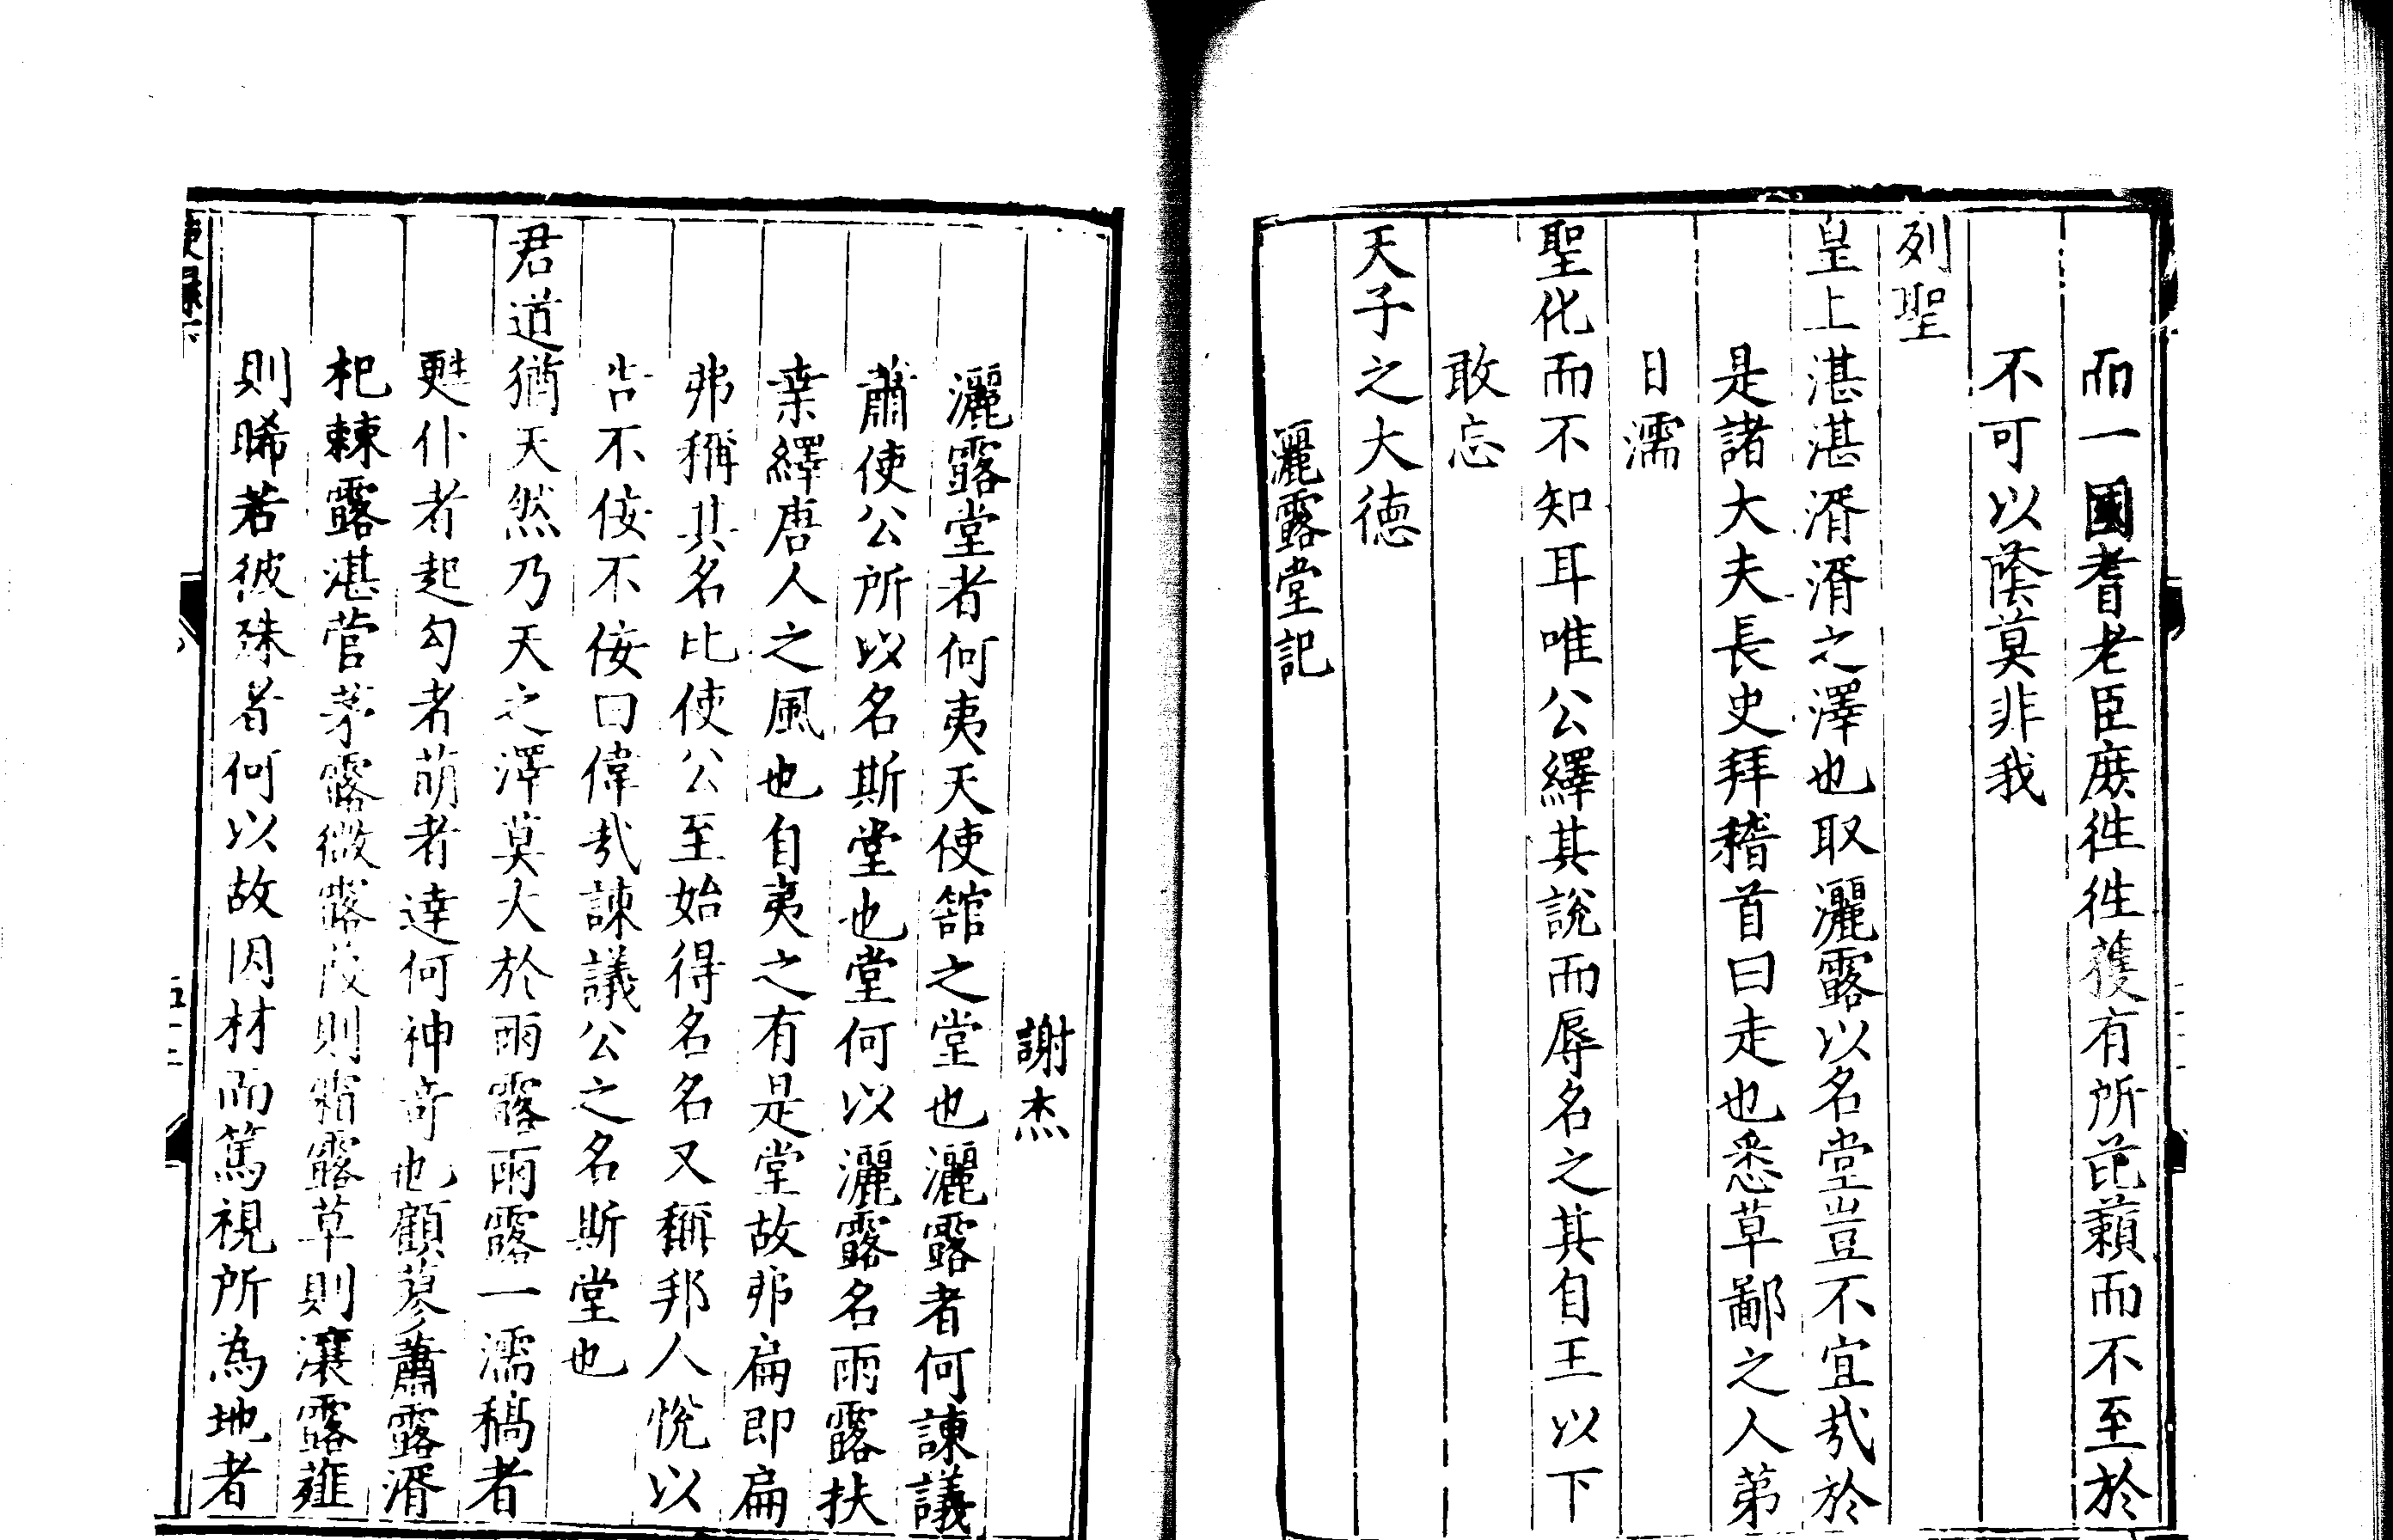 而一國耆老臣庶徃徃蒦有所芘藾而不至於
不可以蔭莫非我
列聖
皇上湛湛湑湑之澤也取灑露以名堂豈不宜哉於
是諸大夫長史拜稽首曰走也悉草鄙之人苐
日濡
聖化而不知耳唯公繹其說而辱名之其自王以下
敢忘
天子之大德
灑露堂記
謝杰
灑露堂者何夷天使舘之堂也灑露者何諫議
蕭使公所以名斯堂也堂何以灑露名雨露扶
桒繹唐人之風也自夷之有是堂故弗扁即扁
弗稱其名比使公至始得名名又稱邦人悅以
告不佞不佞曰偉哉諫議公之名斯堂也
君道猶天然乃天之澤莫大於雨露雨露一濡稿者
甦仆者起勾者萌者達何神竒也顧蓼蕭露湑
杞棘露湛菅茅露微露葭則霜露草則瀼露薤
則晞若彼殊者何以故因材而篤視所為地者